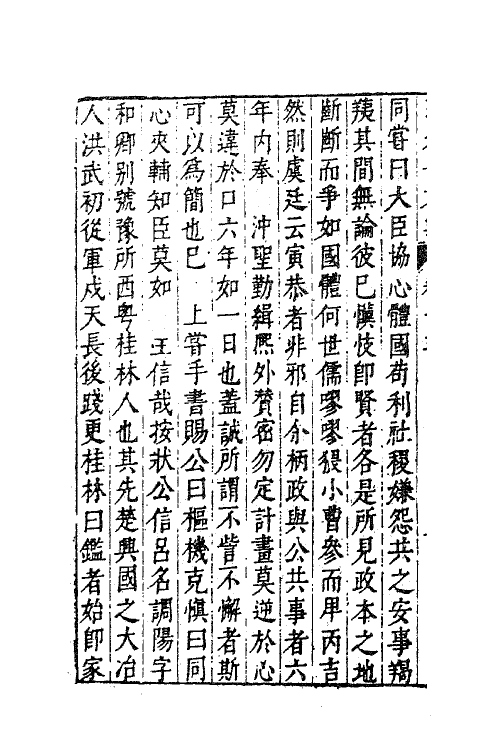 同嘗曰大臣協心體國苟利社稷嫌怨共之安事羯
羠其間無論彼已懻忮卽賢者各是所見政本之地
斷斷而爭如國體何世儒嘐嘐猥小曹參而卑丙吉
然則虞廷云寅恭者非邪自分柄政與公共事者六
年內奉　沖聖勤緝熙外贊密勿定計畫莫逆於心
莫違於口六年如一日也蓋誠所謂不皆不懈者斯
可以爲簡也已　上嘗手書賜公曰樞機克愼曰同
心夾輔知臣莫如　王信哉按狀公信呂名調陽字
和卿別號豫所西粵桂林人也其先楚興國之大冶
人洪武初從軍戍天長後踐更桂林曰鑑者始卽家